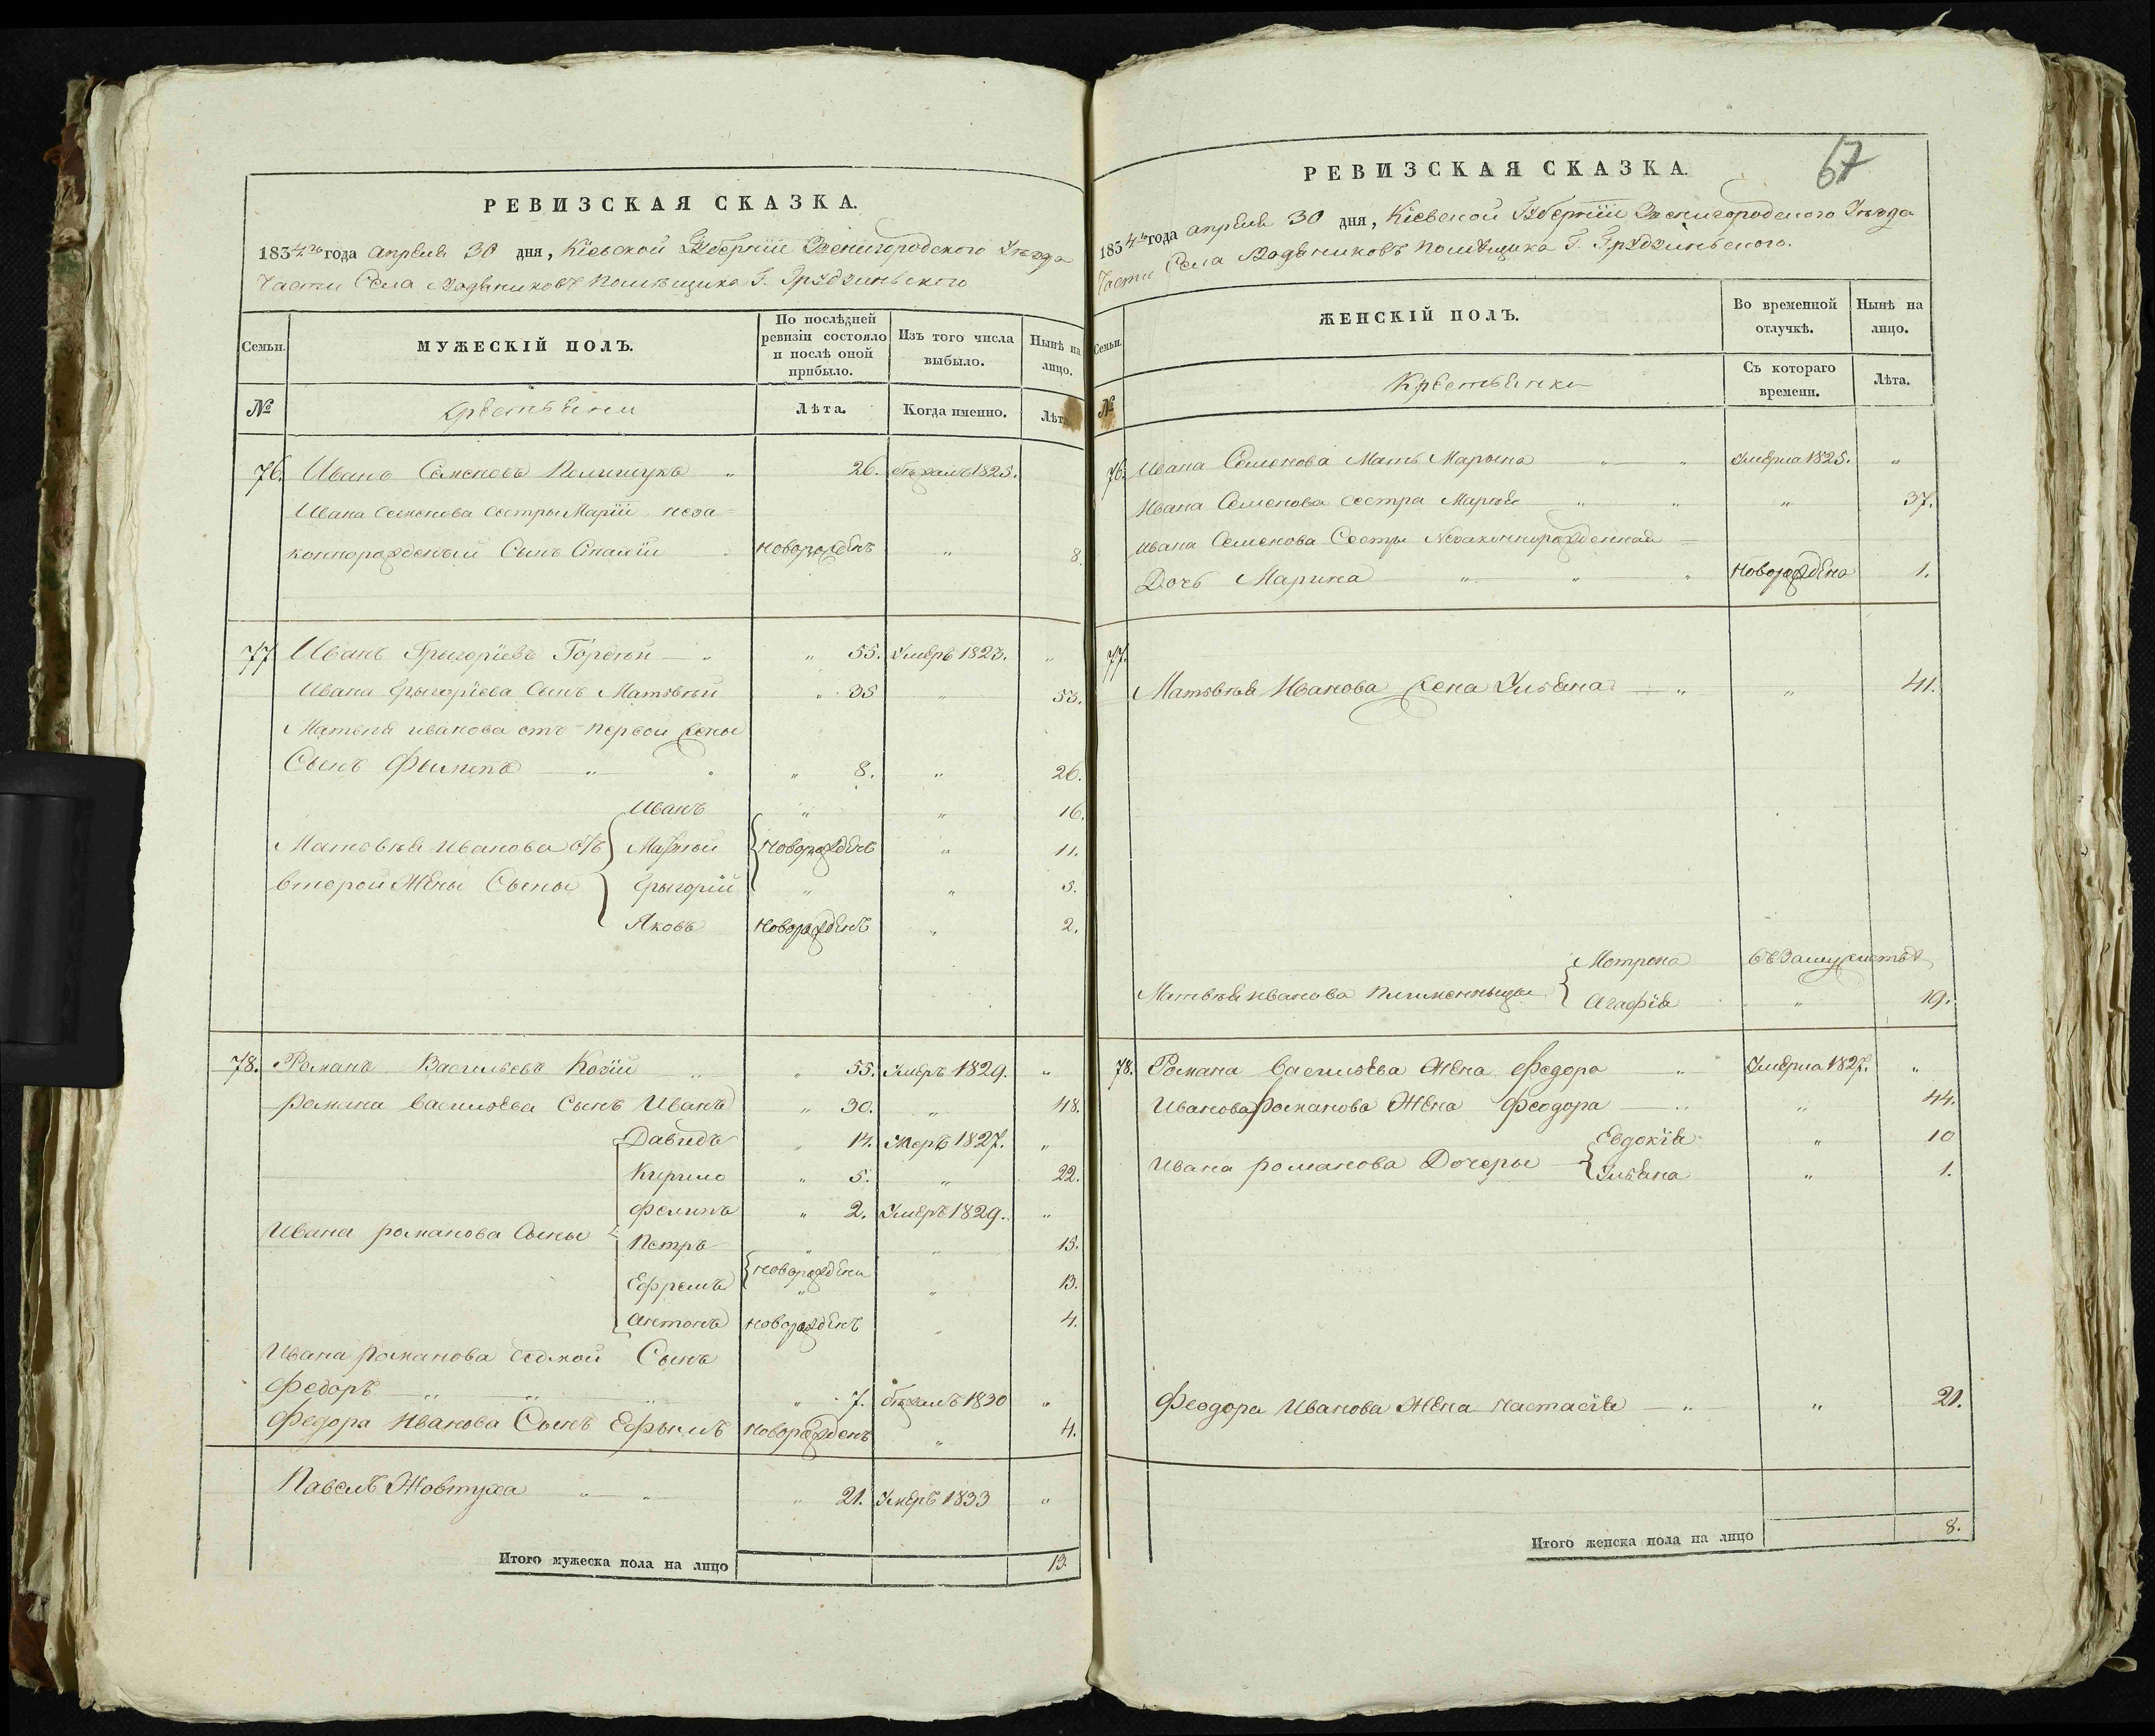 РЕВИЗСКАЯ СКАЗКА.
1834го года апреля 30 дня, Кіевской Губерніи Звенигородского Уезда
Части Села Водяниковъ помѣщика Г. Грудзиньского
Семьи.
МУЖЕСКІЙ ПОЛЪ.
По послѣдней ревизіи состояло и послѣ оной прибыло.
Изъ того числа выбыло.
Нынѣ на лицо.
№
Крестьяни
Лѣта.
Когда именно.
Лѣта
76. Иванъ Семеновъ Полищукъ 26. бѣжалъ 1825.
Ивана Семенова Сестры Маріи неза-
коннорожденый Сынъ новорожденъ 8.
77 Иванъ Григоріевъ 55. Умеръ 1823.
Ивана Григоріева Сынъ Матвѣй 35 53.
Матвѣя иванова отъ первой жены
Сынъ Филипъ 8. 26.
Иванъ 16.
Матвѣя иванова отъ новорождены 11.
второй Жены Сыны Григорій 5.
Яковъ новорожденъ 2.
78. Романъ Васильевъ Козій 55. Умеръ 1829.
Романа Васильева Сынъ Иванъ 30. 48.
Давидъ 14. Умеръ 1827.
Кирило 5. 22.
Филипъ 2. Умеръ 1829.
Ивана романова Сыны Петръ 15.
Ефремъ новорождени 13.
Антонъ новорожденъ 4.
Ивана романова Сынъ
Федоръ 7. бѣжалъ 1830
Федора Иванова Сынъ Ефримъ новорожденъ 4.
Павелъ Жовтуха 21. Умеръ 1833
Итого мужеска пола на лицо 13.
67
РЕВИЗСКАЯ СКАЗКА.
1834го года апреля 30 дня, Кіевской Губерніи Звенигородского Уезда
Части Села Водяниковъ помѣщика Г. Грудзиньского.
Семьи.
ЖЕНСКІЙ ПОЛЪ.
Во временной отлучкѣ.
Нынѣ на лицо.
№
Крестьянки
Съ котораго времени.
Лѣта.
76. Ивана Семенова Мать Марына Умерла 1825.
Ивана Семенова сестра Марія 37.
Ивана Семенова Сестры Незаконнорожденная
Дочь Марина новорождена 1.
77. Матвѣя Иванова жена Ульяна 41.
Мотрона въ Замужиствѣ
Матвѣя иванова племенныцы Агафія 19.
78. Романа Васильева Жена Федора Умерла 1827.
Иванова Романова Жена Феодора 44.
Евдокія 10
Ивана романова Дочеры Ульяна 1.
Феодора Иванова Жена Настасія 21.
Итого женска пола на лицо 8.